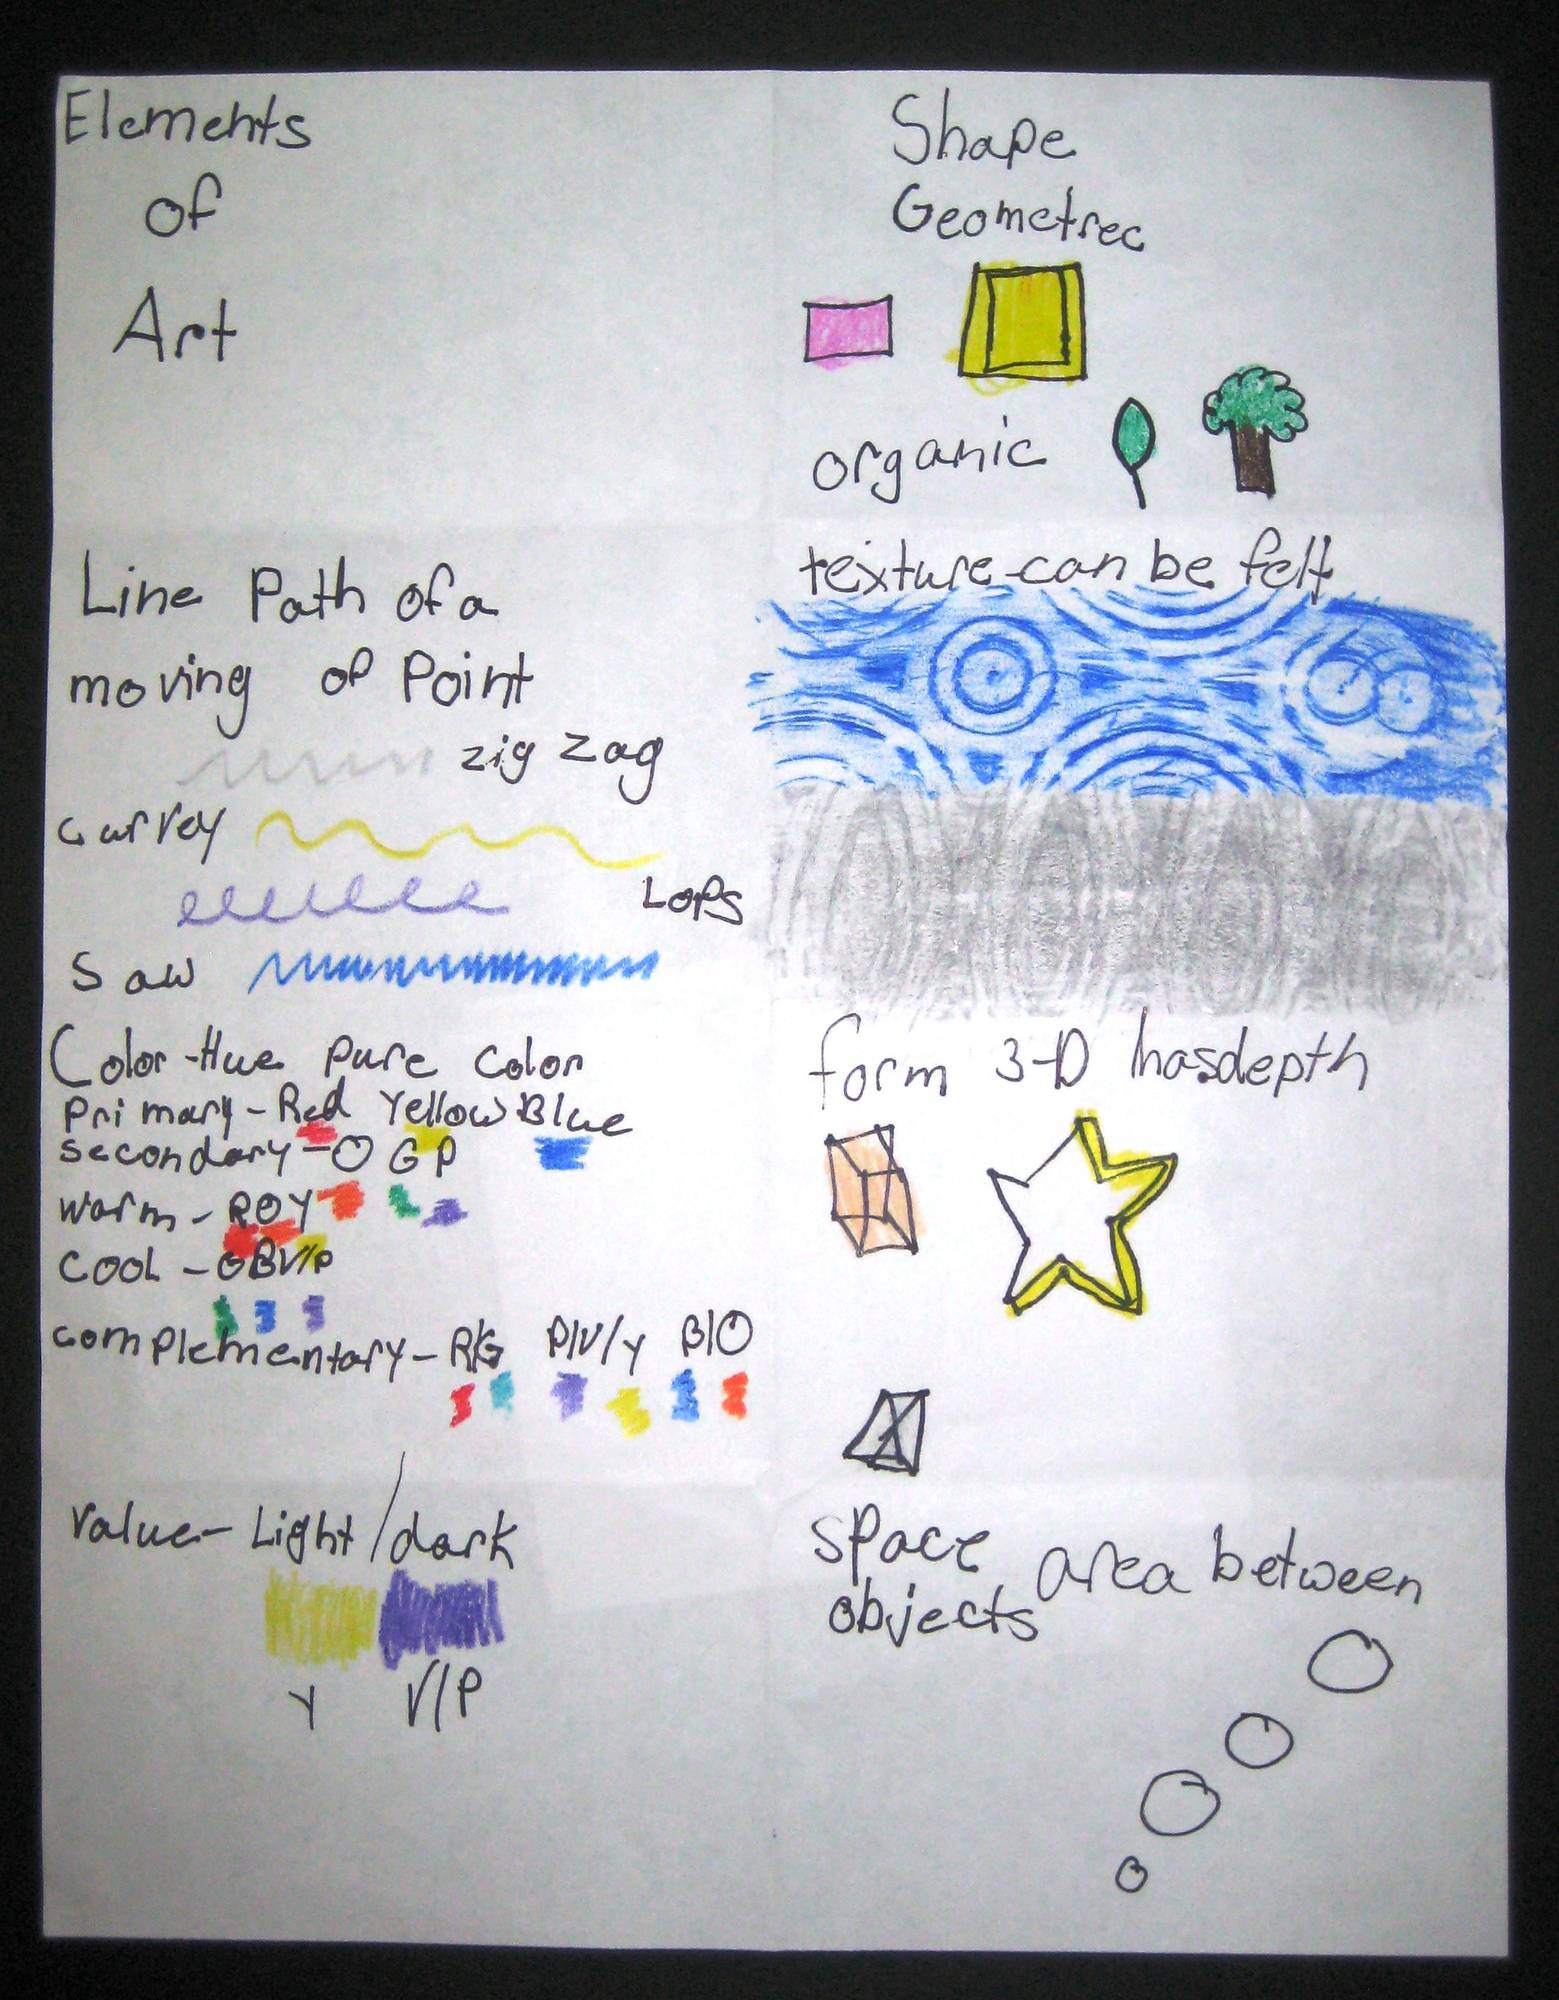 Elements
of
Art
Line Path of a
moving of Point
zig zag
curvey
Lops
Saw
Color-Hue Pure Color
Primary-Red Yellow Blue
Secondary-O G P
Warm-ROY
Cool-GBV/P
Complementary-R/G P/V/Y B/O
Value-Light/dark
Y V/P
Shape
Geometrec
organic
texture-can be felt
form 3-D hasdepth
Space area between
objects